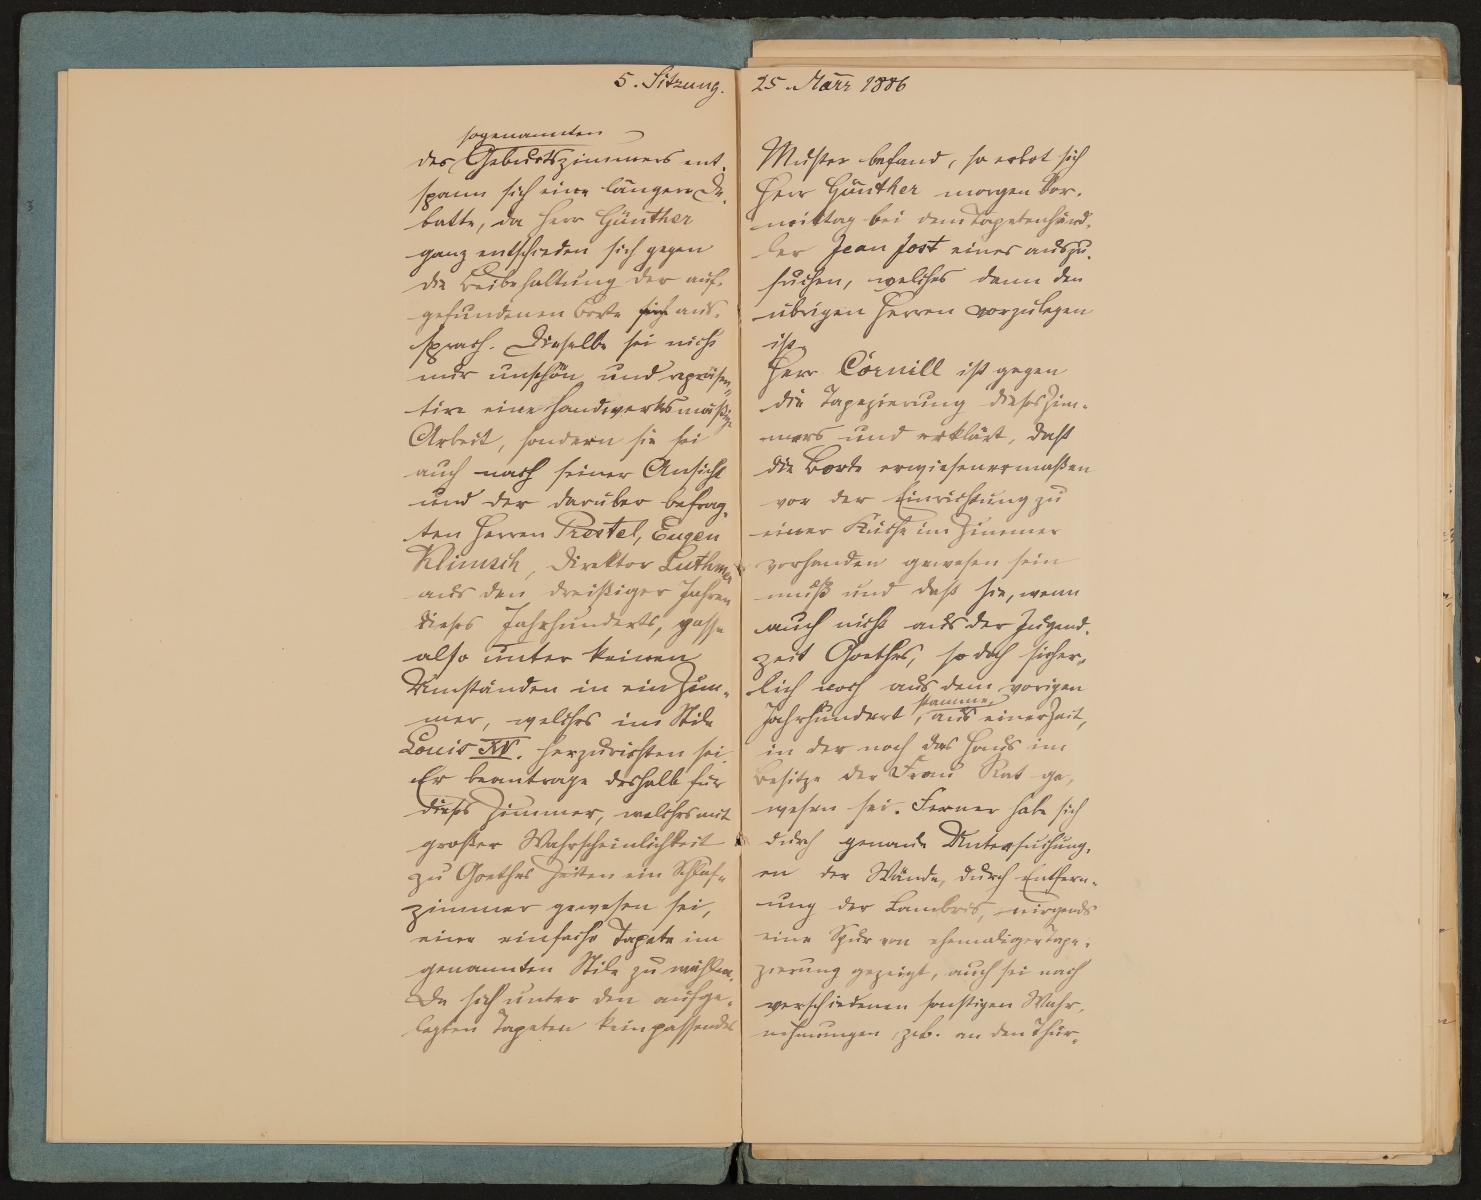 5. Sitzung. 25. März 1886
sogenannten
des Geburtszimmers ent-
spann sich eine längere De-
batte, da Herr Günther
ganz entschieden sich gegen
die Beibehaltung der auf-
gefundenen Borte sich aus-
sprach. Dieselbe sei nicht
nur unschön und repräsen-
tire eine handwerksmäßige
Arbeit, sondern sie sei
auch nach seiner Ansicht
und der darüber befrag-
ten Herren Prestel, Eugen
Klimsch, Direktor Luthmer
aus den dreißiger Jahren
dieses Jahrhunderts, passe
also unter keinen
Umständen in ein Zim-
mer, welches im Stile
Louis XV. herzurichten sei.
Er beantrage deshalb für
dieses Zimmer, welches mit
großer Wahrscheinlichkeit
zu Goethes Zeiten ein Schlaf-
zimmer gewesen sei,
eine einfache Tapete im
genannten Stile zu wählen.
Da sich unter den aufge-
legten Tapeten kein passendes
Muster befand, so erbot sich
Herr Günther morgen Vor-
mittag bei dem Tapetenhänd-
ler Jean Jost eines auszu-
suchen, welches dann den
übrigen Herren vorzulegen
ist.
Herr Cornill ist gegen
die Tapezierung dieses Zim-
mers und erklärt, daß
die Borte erwiesenermaßen
vor der Einrichtung zu
einer Küche im Zimmer
vorhanden gewesen sein
muß und daß sie, wenn
auch nicht aus der Jugend-
zeit Goethes, so doch sicher-
lich noch aus dem vorigen
Jahrhundert stamme, aus einer Zeit,
in der noch das Haus im
Besitze der Frau Rat ge-
wesen sei. Ferner habe sich
durch genaue Untersuchung-
en der Wände, durch Entfern-
ung der Lambris, nirgends
eine Spur von ehemaliger Tape-
zierung gezeigt, auch sei nach
verschiedenen sonstigen Wahr-
nehmungen, z.B. an den Thür-